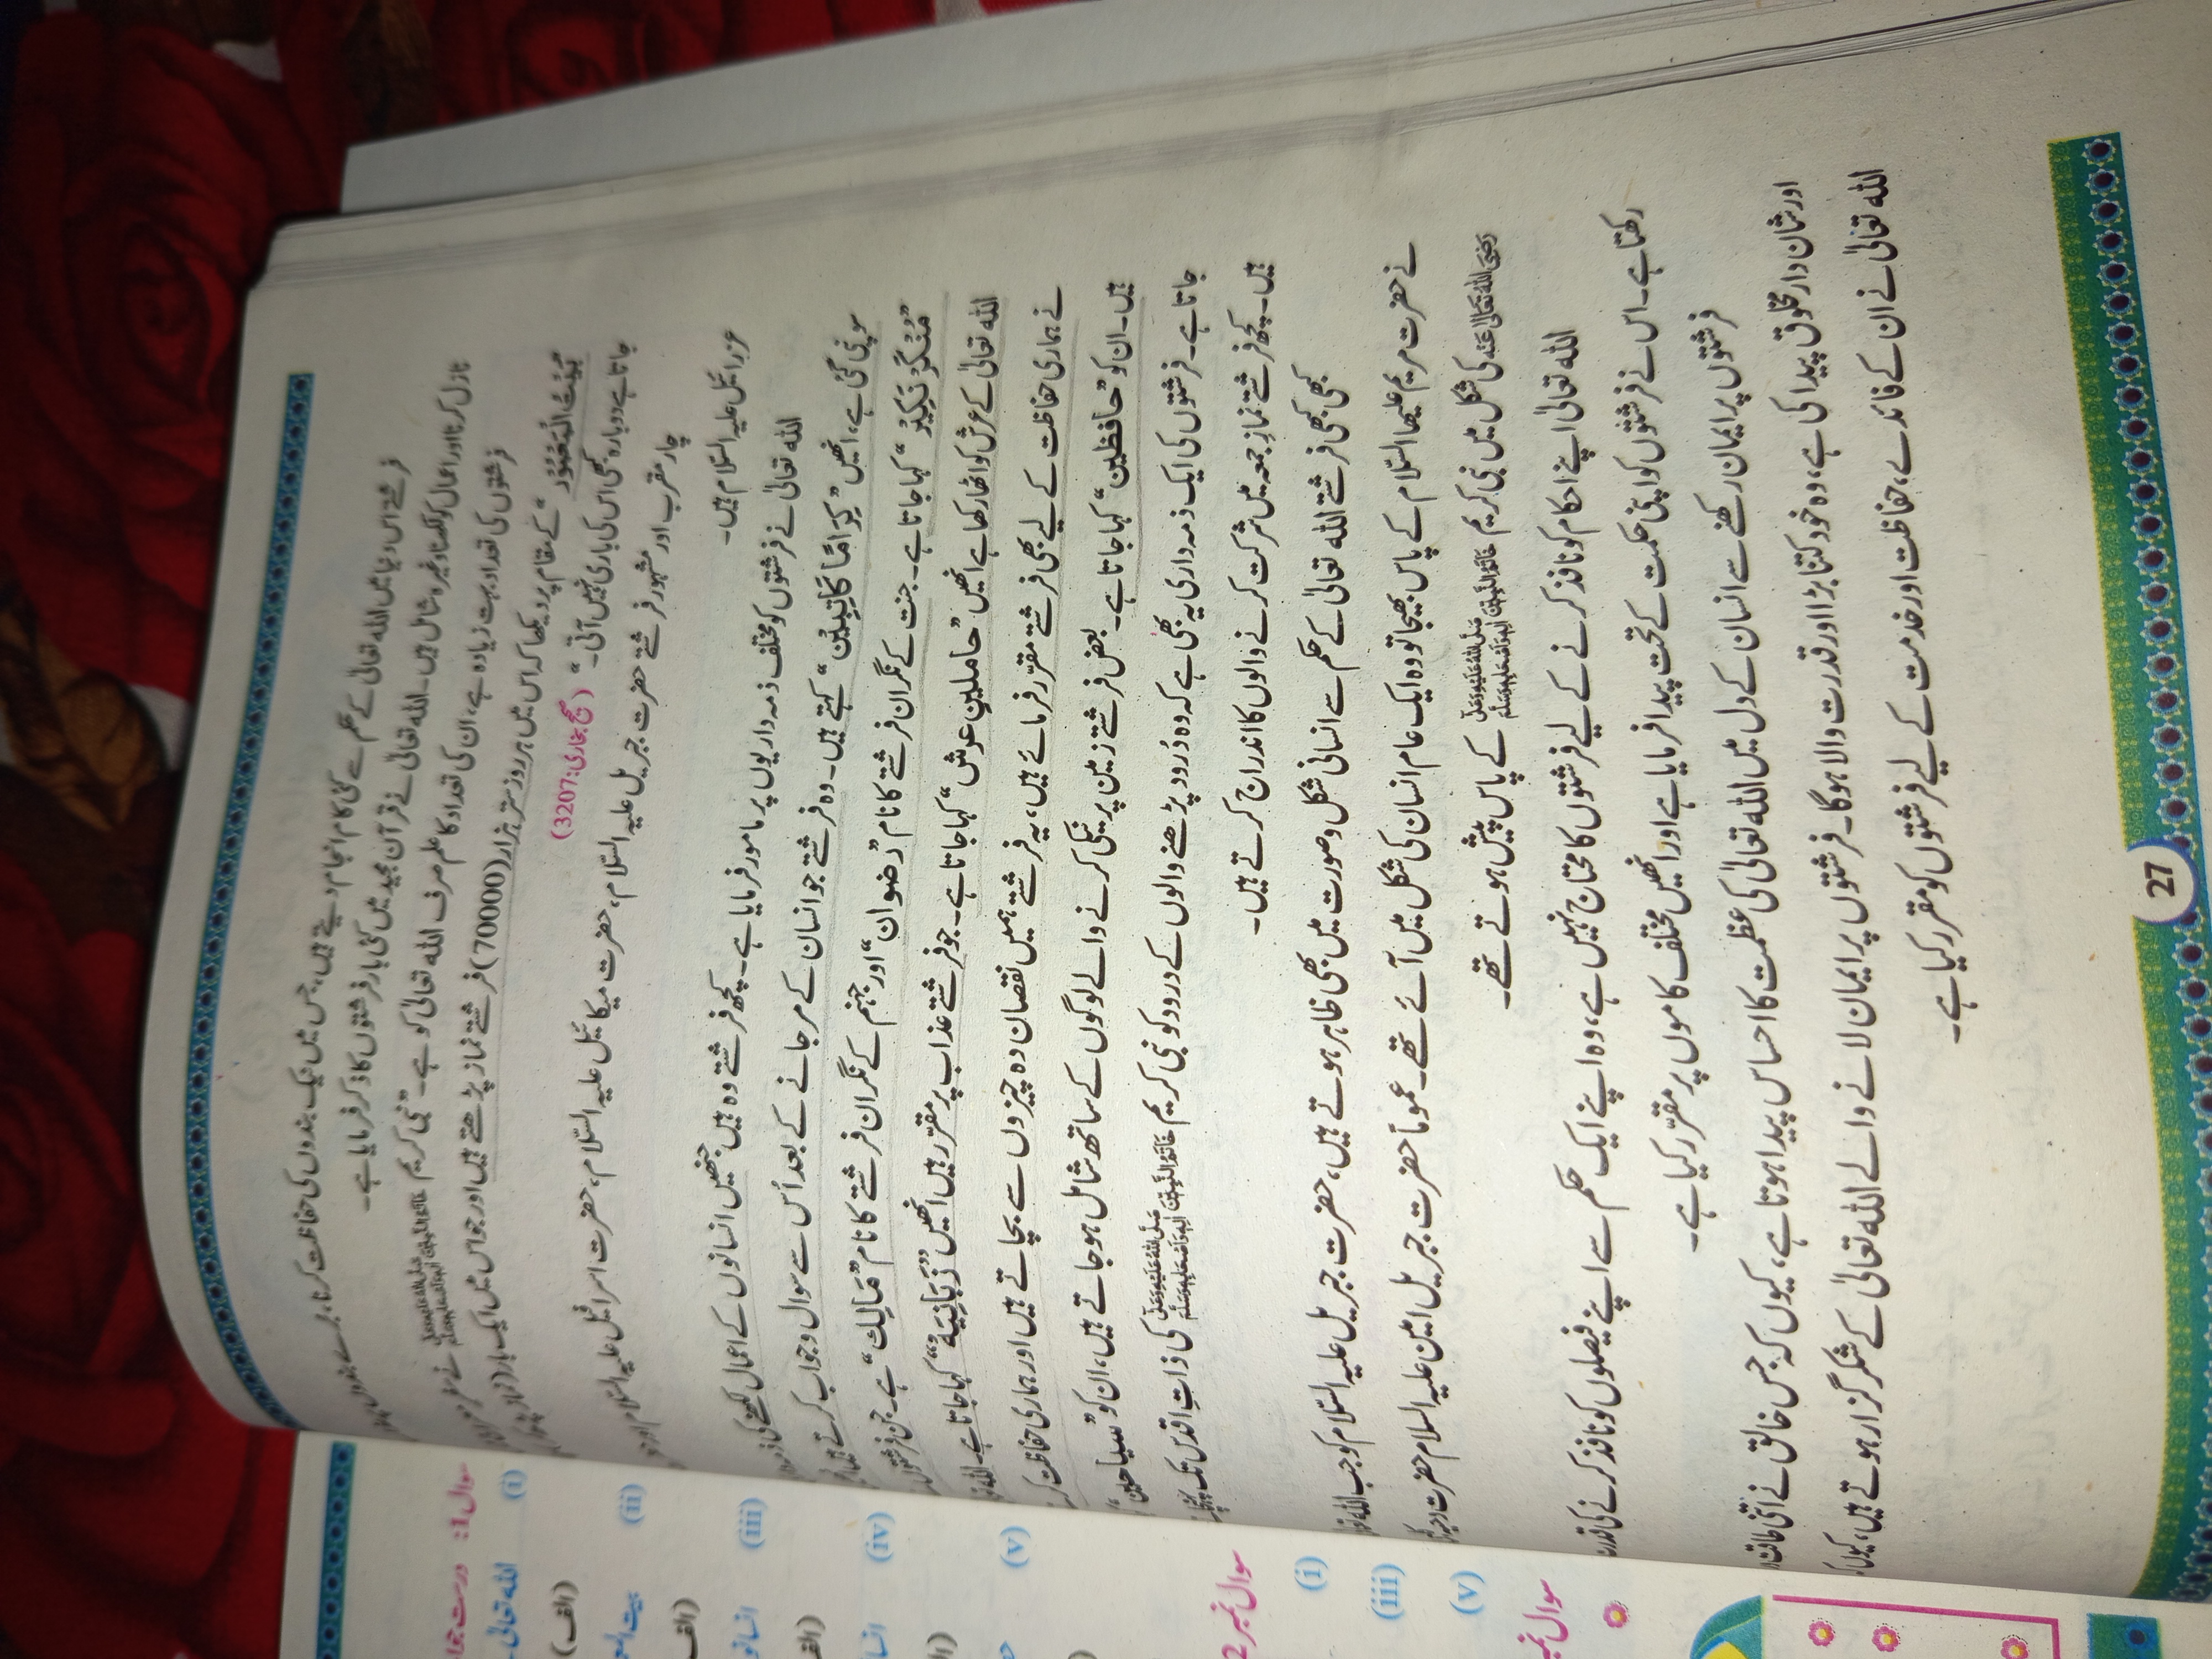 فرشتے اس دنیا میں اللہ تعالیٰ کے حکم سے کئی کام انجام دیتے ہیں، جس میں نیک بندوں کی حفاظت کرنا، برے بندوں پر
نازل کرنا اور اعمال کو لکھنا وغیرہ شامل ہیں۔ اللہ تعالیٰ نے قرآن مجید میں کئی بار فرشتوں کا ذکر فرمایا ہے۔
فرشتوں کی تعداد بہت زیادہ ہے، ان کی تعداد کا علم صرف اللہ تعالیٰ کو ہے۔ ”نبی کریم خَاتَمُ النَّبِیّٖنَ صَلَّی اللہُ عَلَیْہِ وَعَلٰی اٰلِہٖ وَاَصْحَابِہٖ وَسَلَّمَ نے سفر
بَيْتُ الْمَعْمُوْر“ کے مقام پر دیکھا کہ اس میں ہر روز ستر ہزار (70000) فرشتے نماز پڑھتے ہیں اور جو اس میں ایک بار
جاتا ہے دوبارہ کبھی اس کی باری نہیں آتی۔“ (صحیح بخاری: 3207)
چار مقرب اور مشہور فرشتے حضرت جبریل علیہ السّلام، حضرت میکائیل علیہ السّلام، حضرت اسرافیل علیہ السّلام اور
عزرائیل علیہ السّلام ہیں۔
اللہ تعالیٰ نے فرشتوں کو مختلف ذمہ داریوں پر مامور فرمایا ہے۔ کچھ فرشتے وہ ہیں جنھیں انسانوں کے اعمال لکھنے کی
سونپی گئی ہے، انھیں ”كِرَامًا كَاتِبِيْن“ کہتے ہیں۔ وہ فرشتے جو انسان کے مر جانے کے بعد اُس سے سوال و جواب کرتے ہیں
”مُنْكَرْ نَكِيْر“ کہا جاتا ہے۔ جنت کے نگران فرشتے کا نام ”رضوان“ اور جہنم کے نگران فرشتے کا نام ”مَالِك“ ہے۔ جن فرشتوں
اللہ تعالیٰ کے عرش کو اٹھا رکھا ہے انھیں ”حاملینِ عرش“ کہا جاتا ہے۔ جو فرشتے عذاب پر مقرّر ہیں انھیں ”زَبَانِيَه“ کہا جاتا ہے۔ اللہ
نے ہماری حفاظت کے لیے بھی فرشتے مقرّر فرمائے ہیں، یہ فرشتے ہمیں نقصان دہ چیزوں سے بچاتے ہیں اور ہماری حفاظت
ہیں۔ ان کو ”حافظین“ کہا جاتا ہے۔ بعض فرشتے زمین پر نیکی کرنے والے لوگوں کے ساتھ شامل ہو جاتے ہیں، ان کو ”سیاحین“
جاتا ہے۔ فرشتوں کی ایک ذمہ داری یہ بھی ہے کہ وہ دُرود پڑھنے والوں کے درود کو نبی کریم خَاتَمُ النَّبِیّٖنَ صَلَّی اللہُ عَلَیْہِ وَعَلٰی اٰلِہٖ وَاَصْحَابِہٖ وَسَلَّمَ کی ذاتِ اقدس تک
ہیں۔ کچھ فرشتے نمازِ جمعہ میں شرکت کرنے والوں کا اندراج کرتے ہیں۔
کبھی کبھی فرشتے اللہ تعالیٰ کے حکم سے انسانی شکل و صورت میں بھی ظاہر ہوتے ہیں، حضرت جبریل علیہ السّلام کو جب اللہ
نے حضرت مریم علیھا السّلام کے پاس بھیجا تو وہ ایک عام انسان کی شکل میں آئے تھے۔ عموماً حضرت جبریل امین علیہ السلام حضرت
رَضِیَ اللہُ تَعَالٰی عَنْہُ کی شکل میں نبی کریم خَاتَمُ النَّبِیّٖنَ صَلَّی اللہُ عَلَیْہِ وَعَلٰی اٰلِہٖ وَاَصْحَابِہٖ وَسَلَّمَ کے پاس پیش ہوتے تھے۔
اللہ تعالیٰ اپنے احکام کو نافذ کرنے کے لیے فرشتوں کا محتاج نہیں ہے، وہ اپنے ایک حکم سے اپنے فیصلوں کو نافذ کرنے کی
رکھتا ہے۔ اس نے فرشتوں کو اپنی حکمت کے تحت پیدا فرمایا ہے اور انھیں مختلف کاموں پر مقرّر کیا ہے۔
فرشتوں پر ایمان رکھنے سے انسان کے دل میں اللہ تعالیٰ کی عظمت کا احساس پیدا ہوتا ہے، کیوں کہ جس خالق نے اتنی
اور شان دار مخلوق پیدا کی ہے، وہ خود کتنا بڑا اور قدرت والا ہوگا۔ فرشتوں پر ایمان لانے والے اللہ تعالیٰ کے شکر گزار ہوتے ہیں،
اللہ تعالیٰ نے ان کے فائدے، حفاظت اور خدمت کے لیے فرشتوں کو مقرر کیا ہے۔
27
سوال 1: درست
(i) اللہ تعالیٰ
(الف)
(ii)
(الف)
(iii)
(iv)
(v)
سوال نمبر 2
(i)
(iii)
(v)
سوال